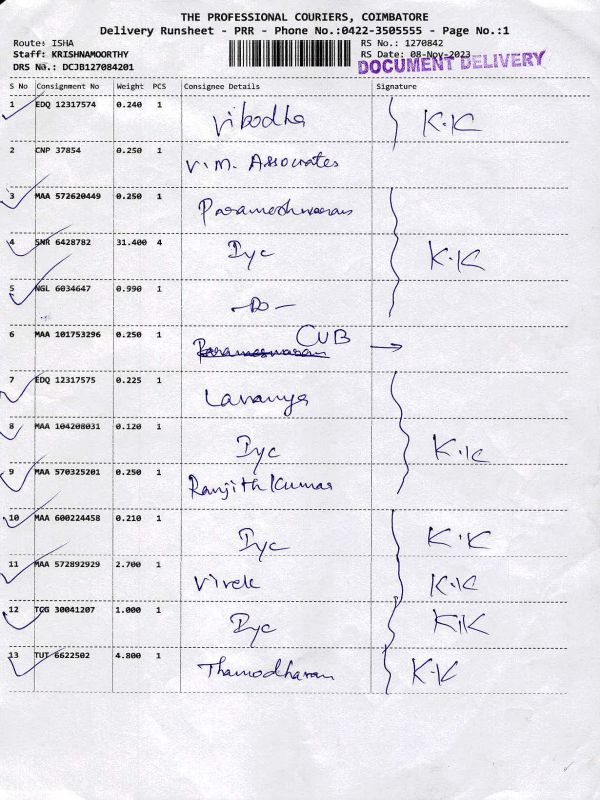 THE PROFESSIONAL COURIERS, COIMBATORE
Delivery Runsheet - PRR - Phone No.:0422-3505555 - Page No.:1
Route: ISHA RS No.: 1270842
Staff: KRISHNAMOORTHY RS Date: 08-Nov-2023
DRS No.: DCJB127084201 DOCUMENT DELIVERY
S No Consignment No Weight PCS Consignee Details Signature
1 EDQ 12317574 0.240 1 Vibodha K.K
2 CNP 37854 0.250 1 V.M. Associates
3 MAA 572620449 0.250 1 Parameshwaran
4 SNR 6428782 31.400 4 Iyc K.K
5 NGL 6034647 0.990 1 -Do-
6 MAA 101753296 0.250 1 CUB →
7 EDQ 12317575 0.225 1 Lavanya
8 MAA 104208031 0.120 1 Iyc K.K
9 MAA 570325201 0.250 1 Ranjith Kumar
10 MAA 600224458 0.210 1 Iyc K.K
11 MAA 572892929 2.700 1 Vivek K.K
12 TCG 30041207 1.000 1 Iyc K.K
13 TUT 6622502 4.800 1 Thamodharan K.K